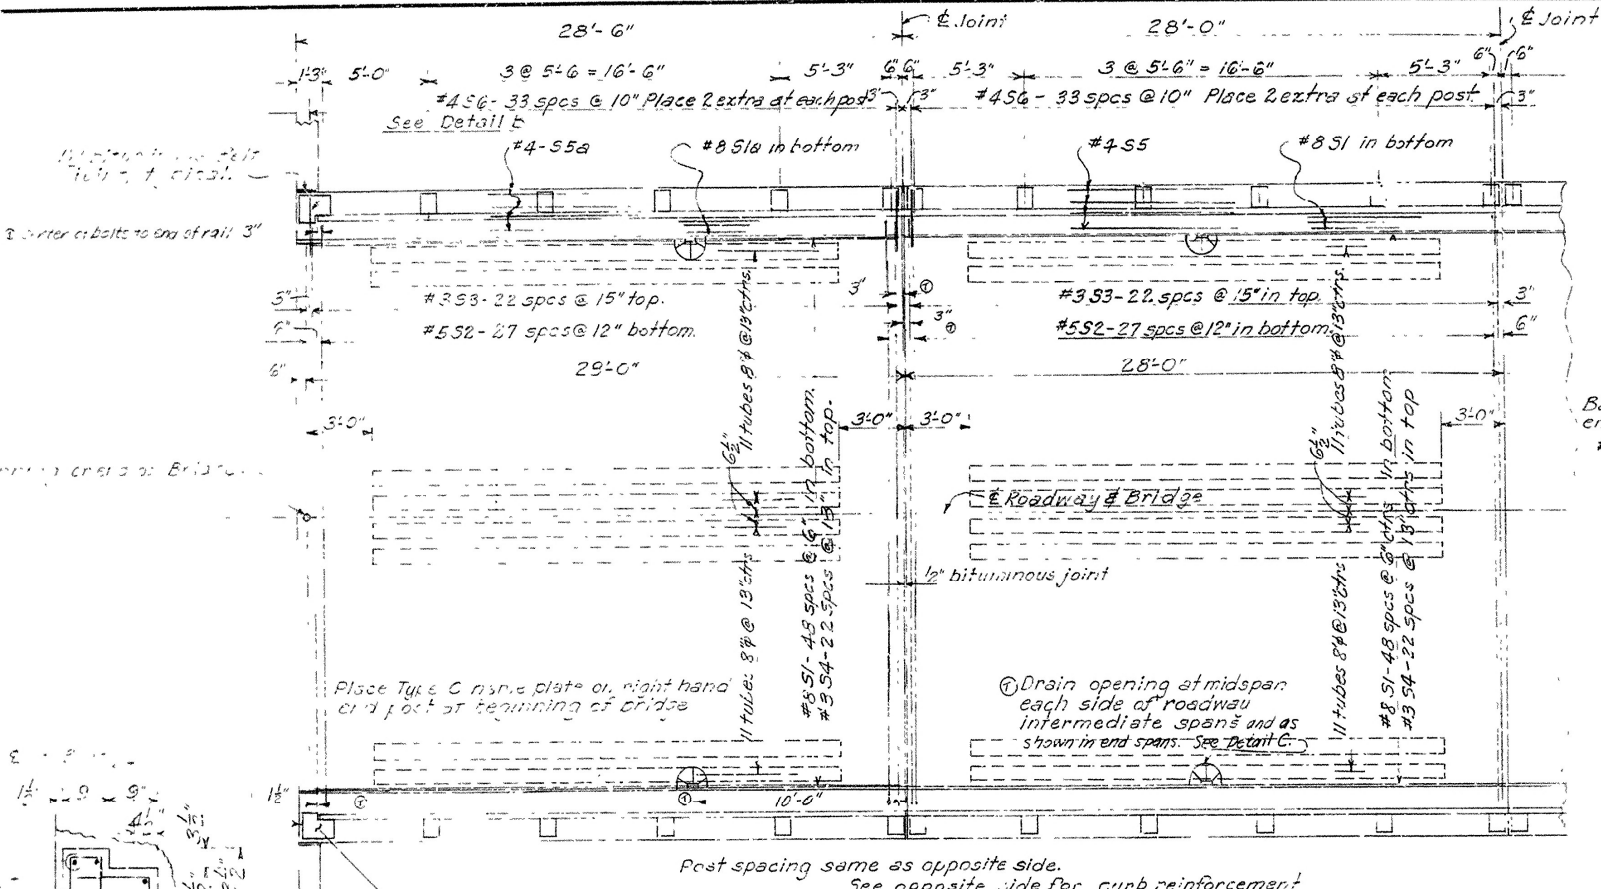 28'-6"
℄ Joint
28'-0"
℄ Joint
1'-3" 5'-0" 3 @ 5'-6 = 16'-6" 5'-3" 6" 6" 5'-3" 3 @ 5'-6" = 16'-6" 5'-3" 6" 6"
#4S6 - 33 spcs @ 10" Place 2 extra at each post 3" 3" #4S6 - 33 spcs @ 10" Place 2 extra at each post 3"
See Detail
#4-S5a #8 S1a in bottom #4S5 #8 S1 in bottom
bolts to end of rail 3"
#3S3-22 spcs @ 15" top. 3" #3S3-22 spcs @ 15" in top. 3"
#5S2-27 spcs @ 12" bottom. 3" #5S2-27 spcs @ 12" in bottom. 6"
6" 29'-0" 28'-0"
3'-0" 3'-0" 3'-0" 3'-0"
6½" 6½"
11 tubes 8"ø @ 13"ctrs.
11 tubes 8"ø @ 13"ctrs
#8S1-48 spcs @ 6" in bottom.
#3S4-22 spcs @ 13" in top.
11 tubes 8"ø @ 13"ctrs.
11 tubes 8"ø @ 13"ctrs
#8 S1-48 spcs @ 6" ctrs in bottom
#3 S4-22 spcs @ 13" ctrs in top
℄ Roadway & Bridge
½" bituminous joint
Place Type C name plate on right hand
end post at beginning of bridge
Ⓣ Drain opening at midspan
each side of roadway
intermediate spans and as
shown in end spans. See Detail C.
1½" Ⓣ Ⓣ 10'-0"
1½" 9 9"
Post spacing same as opposite side.
See opposite side for curb reinforcement